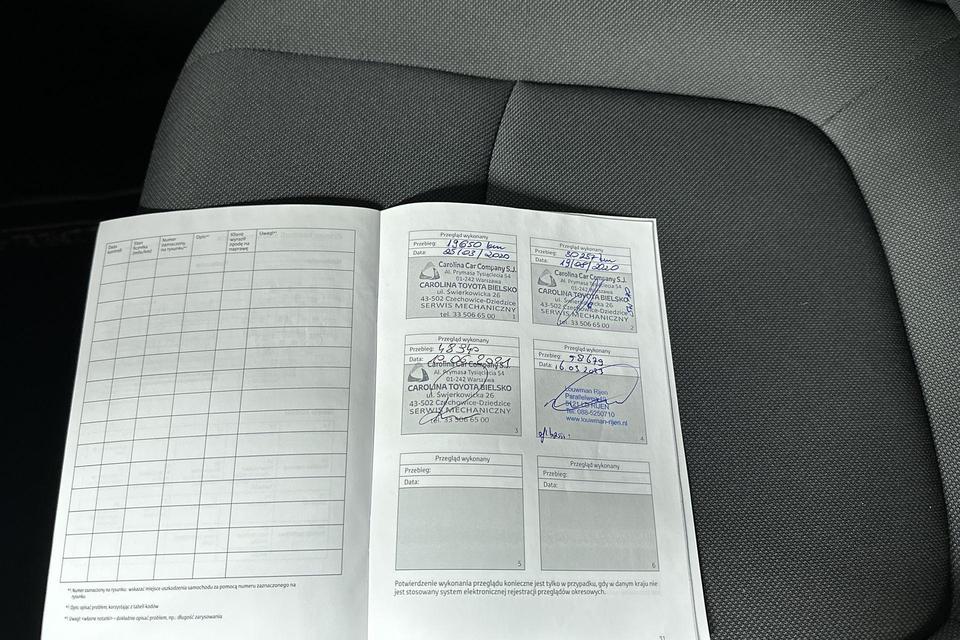 Data
kontroli
Stan
licznika
(mile/km)
Numer
zaznaczony
na rysunku*¹
Opis*²
Klient
wyraził
zgodę na
naprawę
Uwagi*³
*¹ Numer zaznaczony na rysunku: wskazać miejsce uszkodzenia samochodu za pomocą numeru zaznaczonego na
rysunku
*² Opis: opisać problem, korzystając z tabeli kodów
*³ Uwagi: <własne notatki> – dokładnie opisać problem, np.: długość zarysowania
Przegląd wykonany
Przebieg: 19650 km
Data: 25/03/2020
Carolina Car Company S.J.
Al. Prymasa Tysiąclecia 54
01-242 Warszawa
CAROLINA TOYOTA BIELSKO
ul. Świerkowicka 26
43-502 Czechowice-Dziedzice
SERWIS MECHANICZNY
tel. 33 506 65 00
1
Przegląd wykonany
Przebieg: 30257 km
Data: 19/08/2020
Carolina Car Company S.J.
Al. Prymasa Tysiąclecia 54
01-242 Warszawa
CAROLINA TOYOTA BIELSKO
ul. Świerkowicka 26
43-502 Czechowice-Dziedzice
SERWIS MECHANICZNY
tel. 33 506 65 00
2
Przegląd wykonany
Przebieg:
Data:
Carolina Car Company S.J.
Al. Prymasa Tysiąclecia 54
01-242 Warszawa
CAROLINA TOYOTA BIELSKO
ul. Świerkowicka 26
43-502 Czechowice-Dziedzice
SERWIS MECHANICZNY
tel. 33 506 65 00
3
Przegląd wykonany
Przebieg: 98679
Data: 16.03 2023
Louwman Rijen
Parallelweg
RIJEN
Tel. 088-5250710
www.louwman-rijen.nl
4
Przegląd wykonany
Przebieg:
Data:
5
Przegląd wykonany
Przebieg:
Data:
6
Potwierdzenie wykonania przeglądu konieczne jest tylko w przypadku, gdy w danym kraju nie
jest stosowany system elektronicznej rejestracji przeglądów okresowych.
31